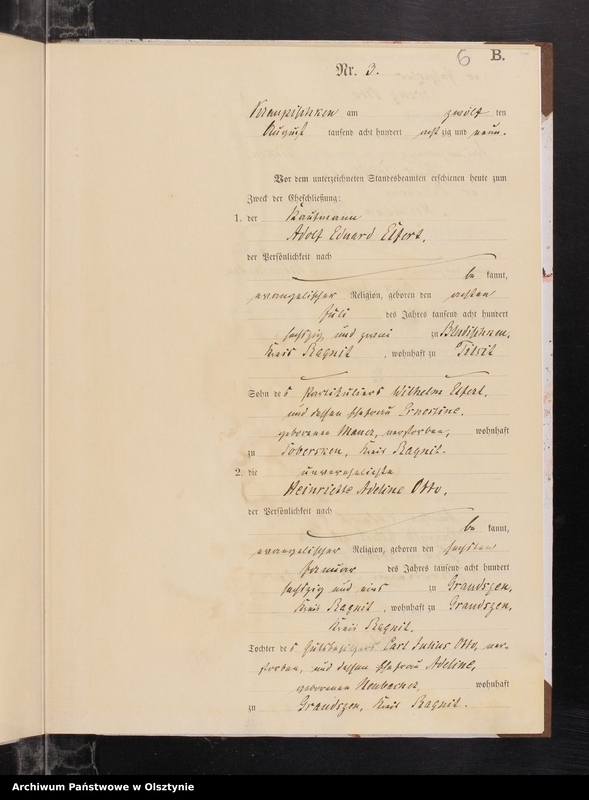 6 B.
Nr. 3.
Kraupischken am zwölf ten
August tausend acht hundert acht zig und neun.
Vor dem unterzeichneten Standesbeamten erschienen heute zum
Zweck der Eheschließung:
1. der Kaufmann
Adolf Eduard
der Persönlichkeit nach
be kannt,
evangelischer Religion, geboren den
Juli des Jahres tausend acht hundert
sechszig und zwei zu
Kreis Ragnit, wohnhaft zu Tilsit
Sohn des Partikuliers Wilhelm
und dessen Ehefrau Ernestine,
geborenen verstorben, wohnhaft
zu Kreis Ragnit.
2. die unverehelichte
Heinriette Adeline Otto,
der Persönlichkeit nach
be kannt,
evangelischer Religion, geboren den sechsten
Januar des Jahres tausend acht hundert
sechszig und eins zu Graudszen,
Kreis Ragnit, wohnhaft zu Graudszen,
Kreis Ragnit.
Tochter des Gutsbesitzers Carl Julius Otto, ver-
storben, und dessen Ehefrau Adeline,
geborenen wohnhaft
zu Graudszen, Kreis Ragnit.
Archiwum Państwowe w Olsztynie